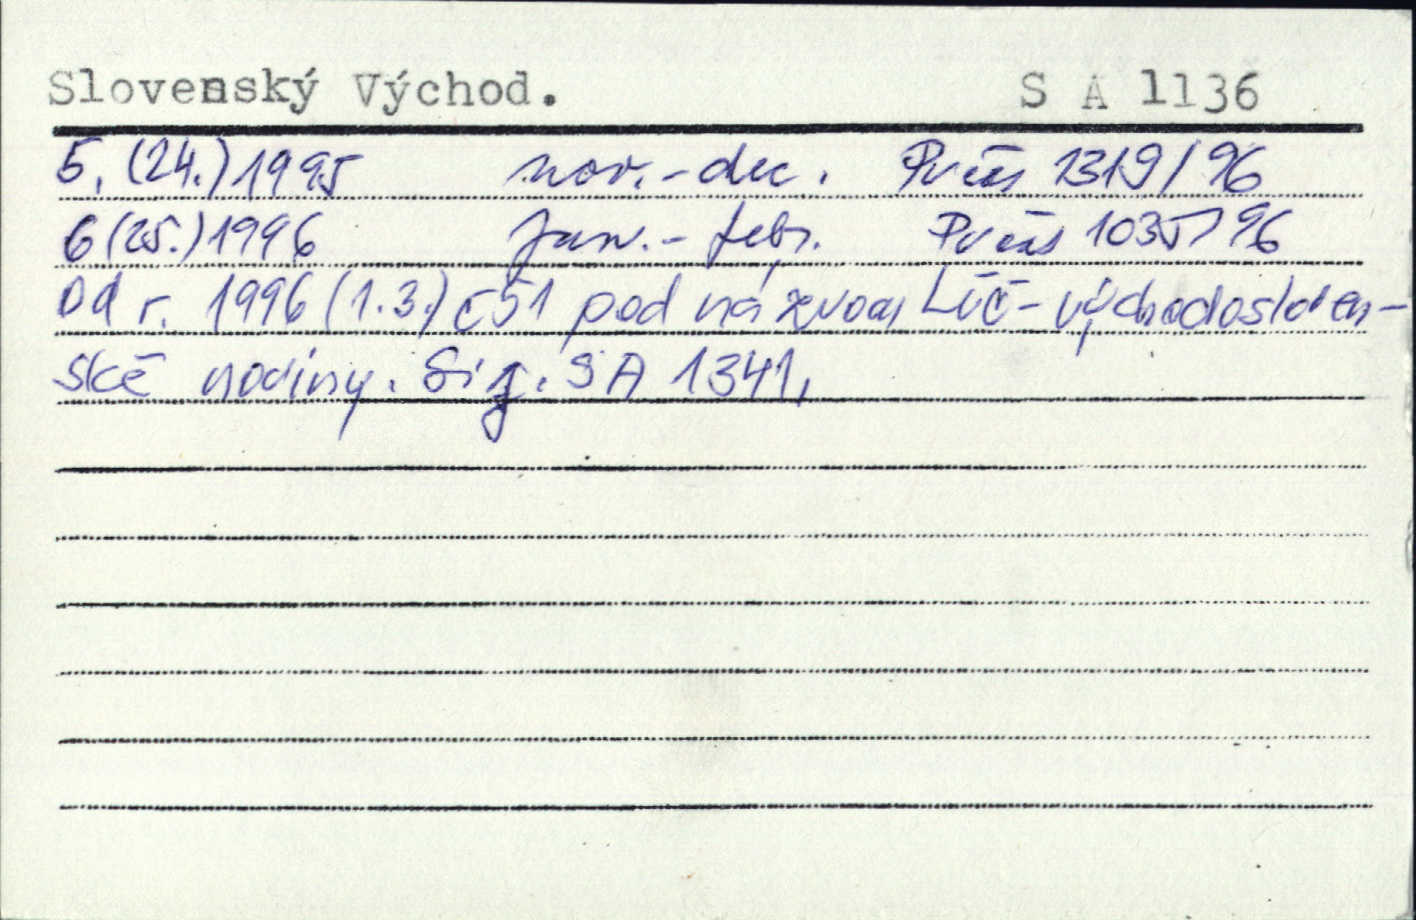 Slovenský Východ. S A 1136
5. (24.) 1995 nov.-dec. Prčas 1319/96
6 (25.) 1996 jan.-febr. Prčas 1035/96
Od r. 1996 (1.3.) č51 pod názvom Lúč-východosloven-
ské noviny. Sig. SA 1341,